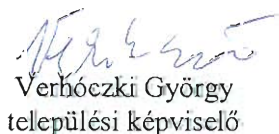 Verhóczki György
települési képviselő